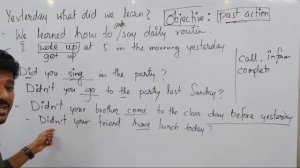 Yesterday what did we learn?
Objective: past action
- We learned how to / say daily routin
ask
I woke up at 5 in the morning yesterday
get up
call, inform
complete
Did you sing in the party?
Didn't you go to the party last Sunday?
- Didn't your brother come to the class day before yesterday
- Didn't your friend have lunch today?